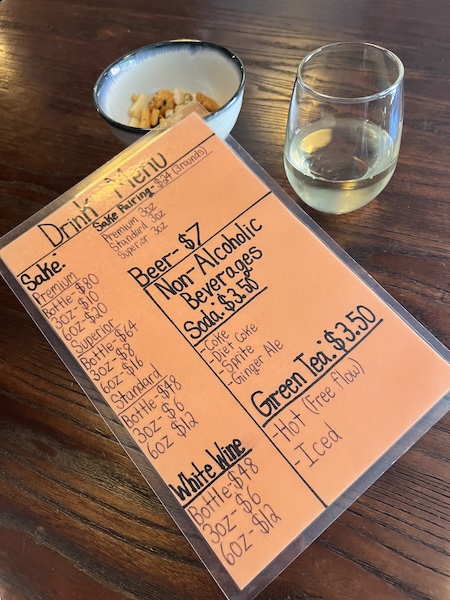 Drink Menu
Sake Pairing - $24 (3 rounds)
Premium 3oz
Standard 3oz
Superior 3oz
Sake:
Premium
Bottle-$80
3oz-$10
6oz-$20
Superior
Bottle-$64
3oz-$8
6oz-$16
Standard
Bottle-$48
3oz-$6
6oz $12
White Wine
Bottle-$48
3oz-$6
6oz-$12
Beer-$7
Non-Alcoholic
Beverages
Soda: $3.50
-Coke
-Diet Coke
-Sprite
-Ginger Ale
Green Tea: $3.50
-Hot (Free flow)
-Iced